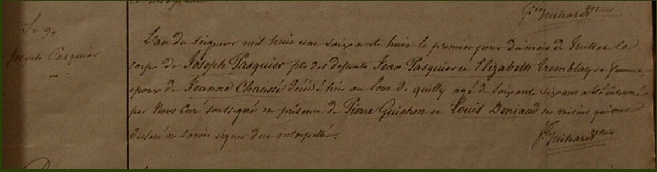 Guichard
S. 9.
Joseph Pasquier
L'an du Seigneur mil huit cent soixante huit le premier jour du mois de Juillet le
corps de Joseph Pasquier fils des défunts Jean Pasquier et Elizabeth Tremblay sa femme
époux de Jeanne Chaussé décédé hier au Pont de quilly agé de soixante six ans a été inhumé
par Nous Curé soussigné en présence de Pierre Guichon et Louis Deniaud qui ont
déclaré ne savoir signer de ce interpellés.
Guichard